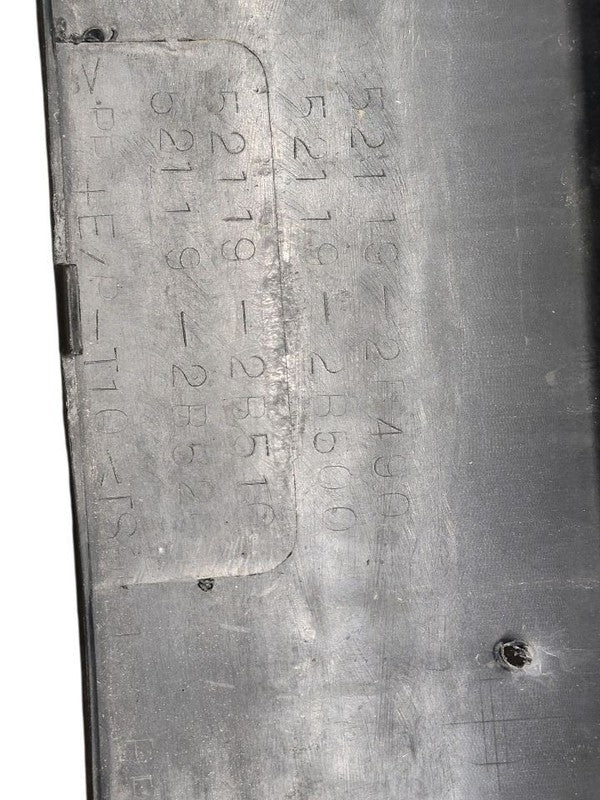 52119-2B490
52119-2B500
52119-2B510
52119-2B52
>PP+E/P-T10<TS